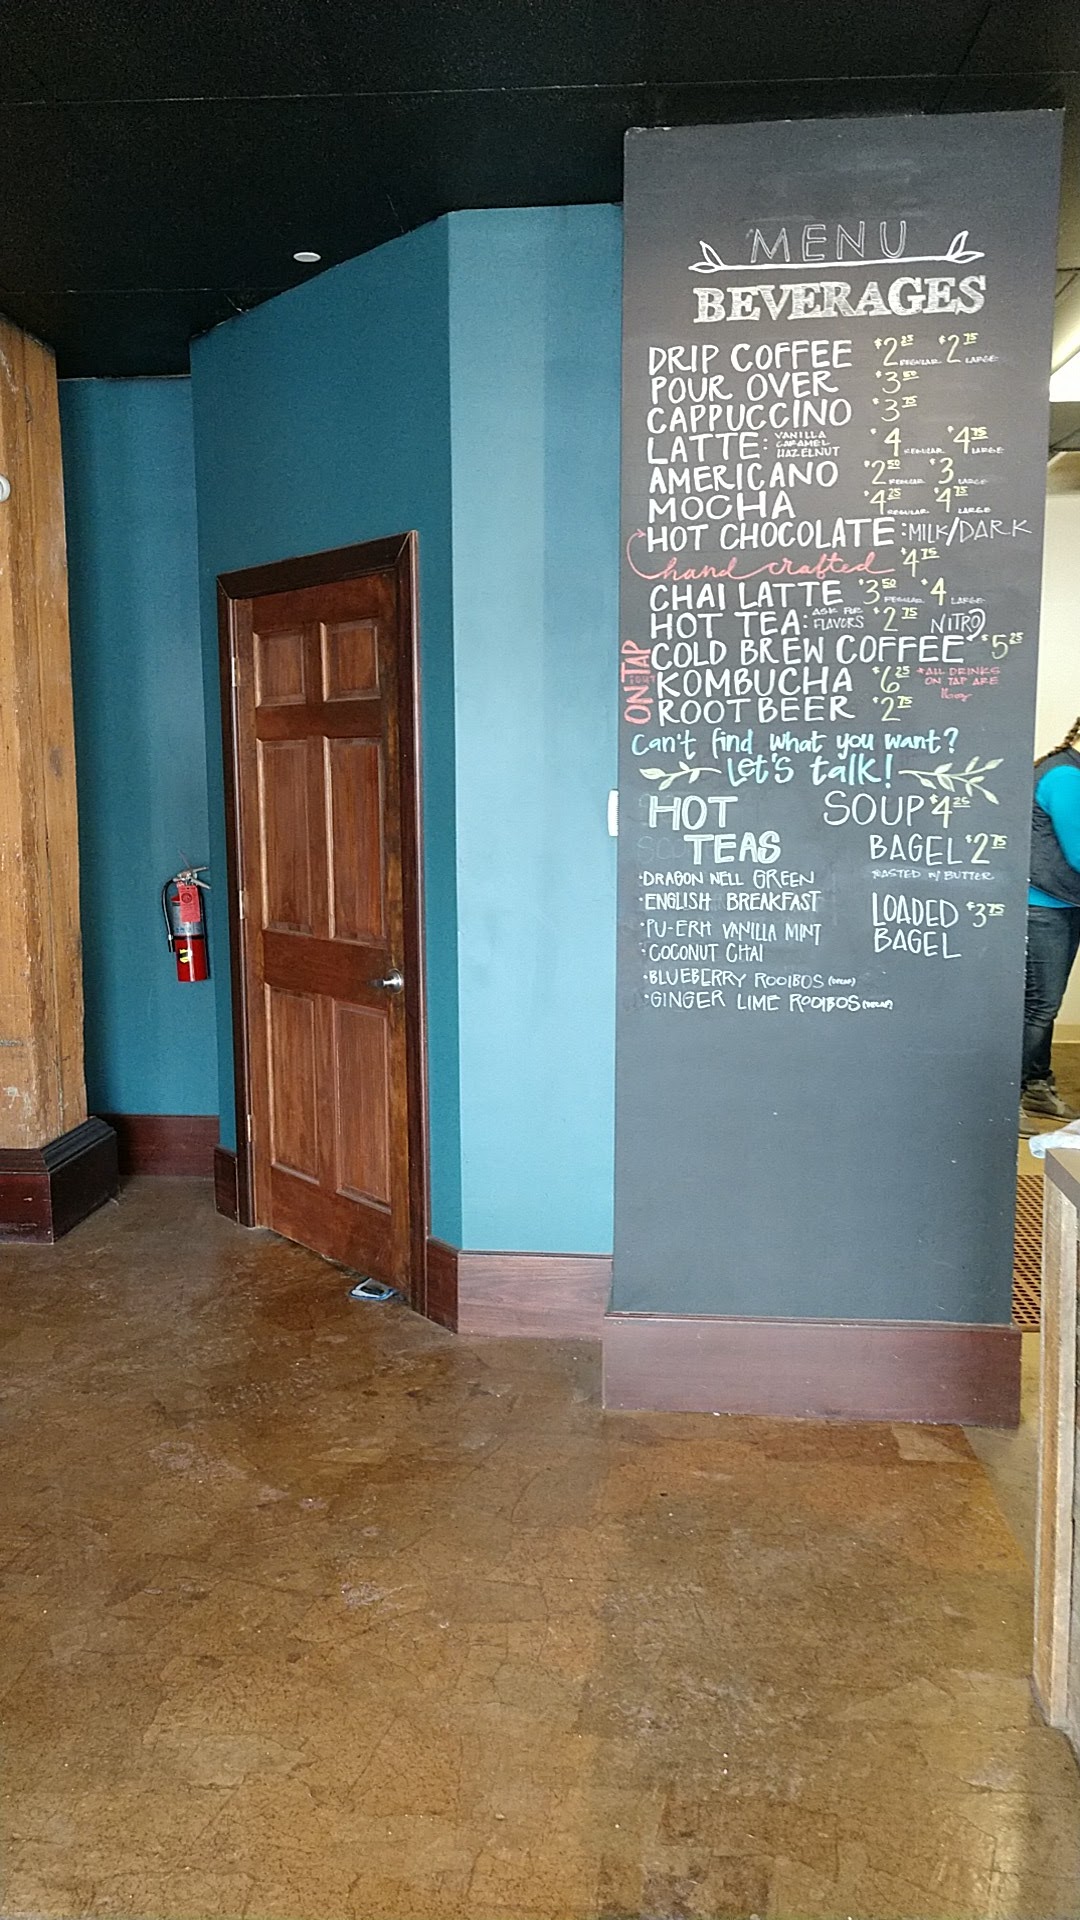 MENU
BEVERAGES
DRIP COFFEE $2.25 REGULAR $2.75 LARGE
POUR OVER $3.50
CAPPUCCINO $3.75
LATTE: VANILLA CARAMEL HAZELNUT $4 REGULAR $4.75 LARGE
AMERICANO $2.50 REGULAR $3 LARGE
MOCHA $4.25 REGULAR $4.75 LARGE
HOT CHOCOLATE: MILK/DARK
hand crafted $4.75
CHAI LATTE $3.50 REGULAR $4 LARGE
HOT TEA: ASK FOR FLAVORS $2.75 NITRO
ON TAP
COLD BREW COFFEE $5.25
KOMBUCHA $6.25 *ALL DRINKS ON TAP ARE 16oz
ROOT BEER $2.75
Can't find what you want?
Let's talk!
HOT TEAS
·DRAGON WELL GREEN
·ENGLISH BREAKFAST
·PU-ERH VANILLA MINT
·COCONUT CHAI
·BLUEBERRY ROOIBOS (DECAF)
·GINGER LIME ROOIBOS (DECAF)
SOUP $4.25
BAGEL $2.75
TOASTED W/ BUTTER
LOADED BAGEL $3.75